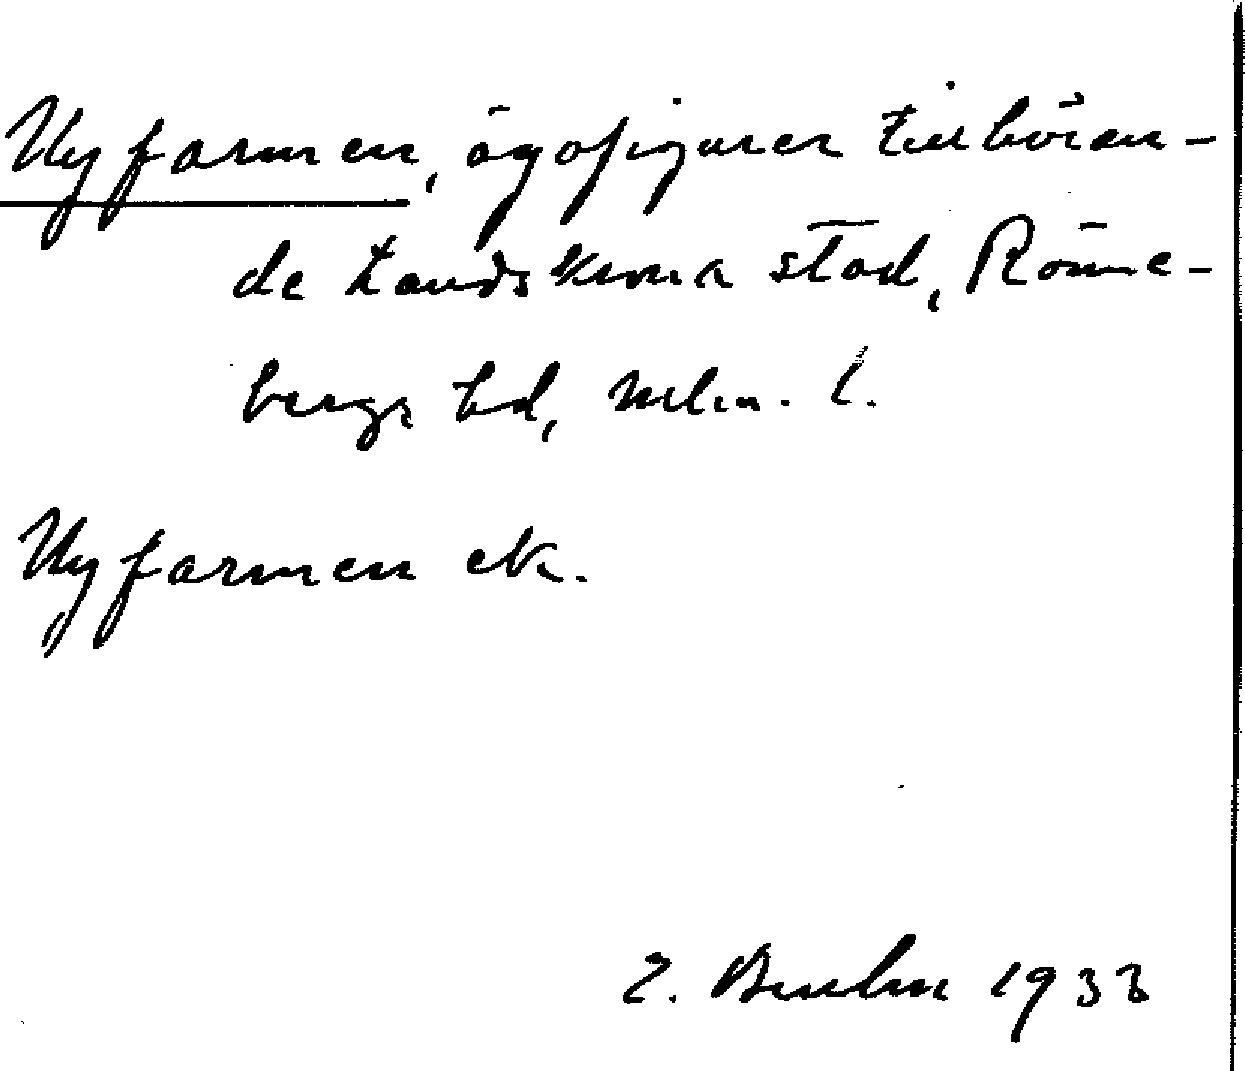 Nyfarmen, ägofigurer tillhöran-
de Landskrona stad, Rönne-
bergs hd, Mlm. l.
Nyfarmen ek.
1933